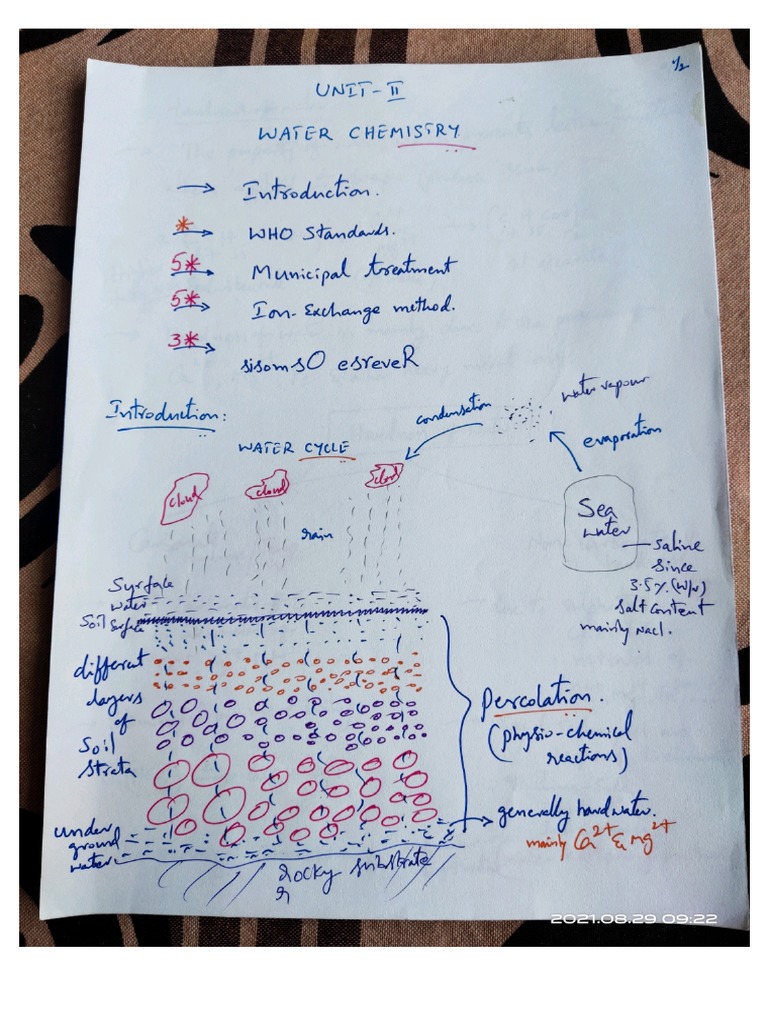 1/2
UNIT-II
WATER CHEMISTRY
→ Introduction.
*→ WHO Standards.
5*→ Municipal treatment
5*→ Ion-Exchange method.
3*→ sisomsO esreveR
Introduction:
WATER CYCLE
condensation
water vapour
evaporation
cloud
cloud
cloud
rain
Sea
water
saline
since
3.5% (W/v)
salt content
mainly NaCl.
Syrface
water
Soil Surface
different
layers
of
Soil
Strata
Percolation.
(physio-chemical
reactions)
under
ground
water
generally hardwater.
mainly Ca²⁺ & Mg²⁺
rocky substrate
2021.08.29 09:22